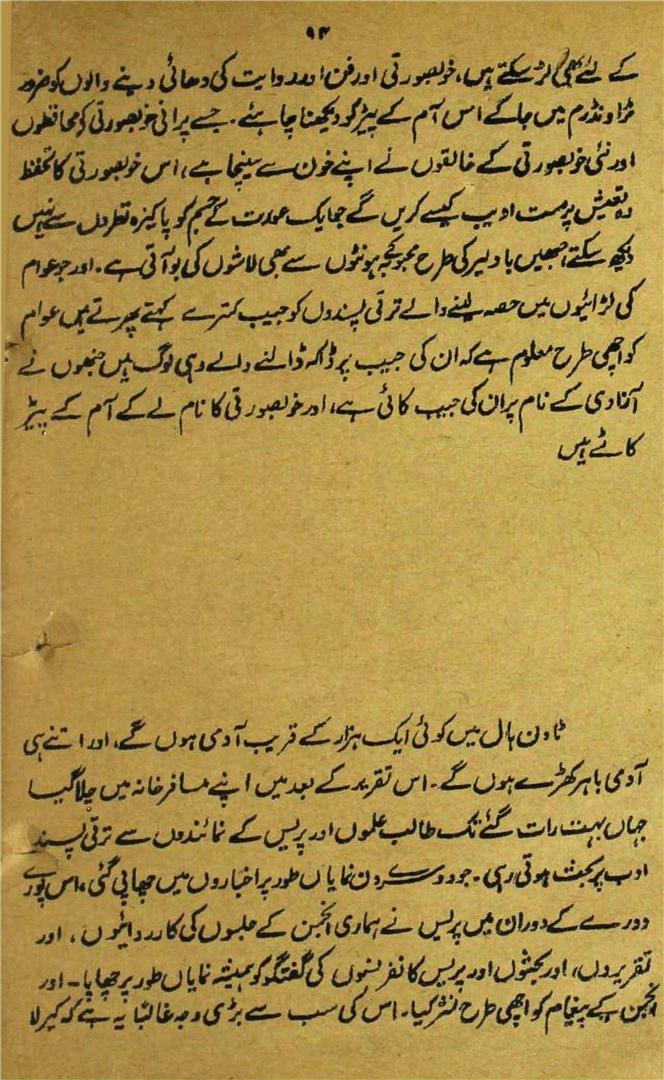 ۹۴
کے لئے بھی لڑ سکتے ہیں، خوبصورتی اور فن اور روایت کی دھائی دینے والوں کو ضرور
ٹراونڈرم میں جا کے اس آم کے پیڑ کو دیکھنا چاہئے۔ جسے پرانی خوبصورتی کے محافظوں
اور نئی خوبصورتی کے خالقوں نے اپنے خون سے سینچا ہے، اس خوبصورتی کا تحفظ
وہ تعیش پرست ادیب کیسے کریں گے جو ایک عورت کے جسم کو پاکیزہ نظروں سے نہیں
دیکھ سکتے، جنھیں بادلیر کی طرح محبوبہ کے ہونٹوں سے بھی لاشوں کی بو آتی ہے۔ اور جو عوام
کی لڑائیوں میں حصہ لینے والے ترقی پسندوں کو جیب کترے کہتے پھرتے ہیں عوام
کو اچھی طرح معلوم ہے کہ ان کی جیب پر ڈاکہ ڈالنے والے وہی لوگ ہیں جنھوں نے
آزادی کے نام پر ان کی جیب کاٹی ہے، اور خوبصورتی کا نام لے کے آم کے پیڑ
کاٹے ہیں
ٹاون ہال میں کوئی ایک ہزار کے قریب آدمی ہوں گے، اور اتنے ہی
آدمی باہر کھڑے ہوں گے۔ اس تقریر کے بعد میں اپنے مسافر خانہ میں چلا گیا
جہاں بہت رات گئے تک طالب علموں اور پریس کے نمائندوں سے ترقی پسند
ادب پر بحث ہوتی رہی۔ جو دوسرے دن نمایاں طور پر اخباروں میں چھاپی گئی، اس پورے
دورے کے دوران میں پریس نے ہماری انجمن کے جلسوں کی کارروائیوں، اور
تقریروں، اور بحثوں اور پریس کانفرنسوں کی گفتگو کو ہمیشہ نمایاں طور پر چھاپا۔ اور
انجمن کے پیغام کو اچھی طرح نشر کیا۔ اس کی سب سے بڑی وجہ غالباً یہ ہے کہ کیرلا